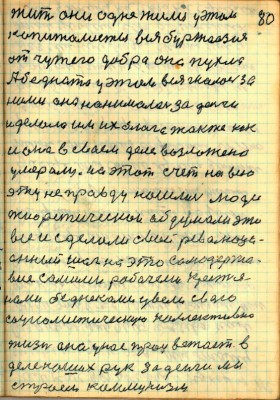 жит они одне жили у этом 80
копитолисты вся буржоазия
от чужего добра она пухла
А беднота у этом вся
нами она нанималас за денги
и делола им их блага также как
и она в своем деле возложено
умерали. на этот счет на всю
эту неправду нашли люди
тиоретический обдумали это
все и сделоли свой револьюцы-
онный шаг на это самодержа-
вие самими рабочеми крестя-
нами бедняками увели сваго
социолитическую колективно
жизн она у нас процветает в
делеконших рук за денги мы
строем коммунизм